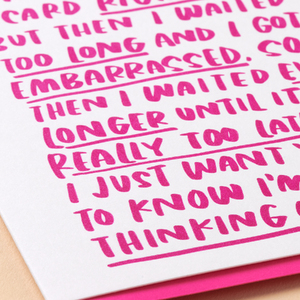 CARD
BUT THEN I WAITED
TOO LONG AND I GOT
EMBARRASSED. SO
THEN I WAITED
LONGER UNTIL IT
REALLY TOO LATE
I JUST WANT
TO KNOW I'M
THINKING